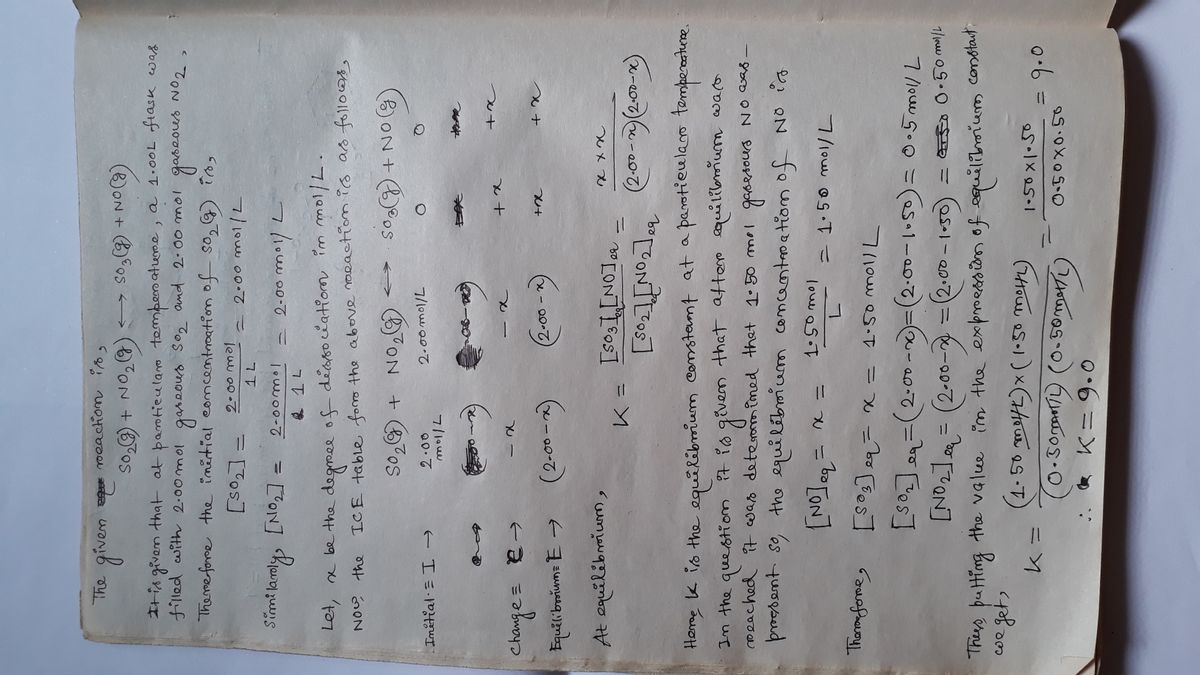 The given reaction is,
SO2(g) + NO2(g) ⟷ SO3(g) + NO(g)
It is given that at particular temperature, a 1.00L flask was
filled with 2.00 mol gaseous SO2 and 2.00 mol gaseous NO2,
Therefore the initial concentration of SO2(g) is,
[SO2] = 2.00 mol / 1 L = 2.00 mol/L
Similarly, [NO2] = 2.00 mol / 1 L = 2.00 mol/L
Let, x be the degree of dissociation in mol/L.
Now, the ICE table for the above reaction is as follows,
SO2(g) + NO2(g) ⟷ SO3(g) + NO(g)
Initial = I → 2.00 mol/L 2.00 mol/L 0 0
Change = C → -x -x +x +x
Equilibrium = E → (2.00-x) (2.00-x) +x +x
At equilibrium,
K = [SO3]eq[NO]eq / [SO2]eq[NO2]eq = x × x / (2.00-x)(2.00-x)
Here, K is the equilibrium constant at a particular temperature.
In the question it is given that after equilibrium was
reached it was determined that 1.50 mol gaseous NO was-
present. So, the equilibrium concentration of NO is
[NO]eq = x = 1.50 mol / L = 1.50 mol/L
Therefore,
[SO3]eq = x = 1.50 mol/L
[SO2]eq = (2.00-x) = (2.00-1.50) = 0.5 mol/L
[NO2]eq = (2.00-x) = (2.00-1.50) = 0.50 mol/L
Thus, putting the value in the expression of equilibrium constant,
we get,
K = (1.50 mol/L) × (1.50 mol/L) / (0.50 mol/L) (0.50 mol/L) = 1.50 × 1.50 / 0.50 × 0.50 = 9.0
∴ K = 9.0